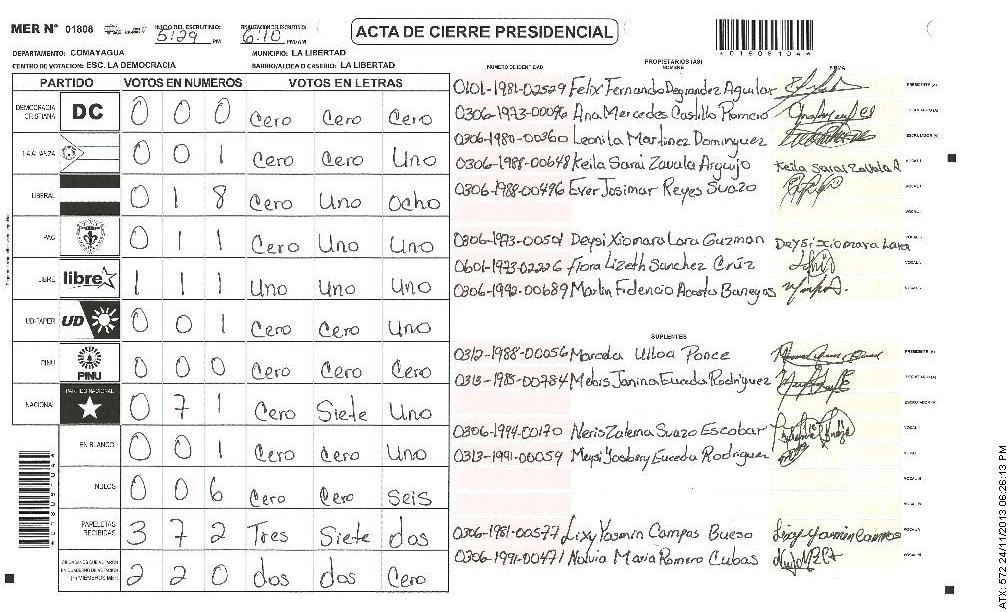 MER Nº 01808 INICIO DEL ESCRUTINIO: 5:29 PM FINALIZACION DEL ESCRUTINIO: 6:10 PM/AM ACTA DE CIERRE PRESIDENCIAL
DEPARTAMENTO: COMAYAGUA MUNICIPIO: LA LIBERTAD
CENTRO DE VOTACION: ESC. LA DEMOCRACIA BARRIO/ALDEA O CASERIO: LA LIBERTAD
PARTIDO VOTOS EN NUMEROS VOTOS EN LETRAS
DEMOCRACIA CRISTIANA DC 0 0 0 Cero Cero Cero
LA ALIANZA 0 0 1 Cero Cero Uno
LIBERAL 0 1 8 Cero Uno ocho
PAC 0 1 1 Cero Uno Uno
LIBRE libre 1 1 1 Uno Uno Uno
UD-FAPER UD 0 0 1 Cero Cero Uno
PINU PINU 0 0 0 Cero Cero Cero
NACIONAL PARTIDO NACIONAL 0 7 1 Cero Siete Uno
EN BLANCO 0 0 1 Cero Cero Uno
NULOS 0 0 6 Cero Cero Seis
PAPELETAS RECIBIDAS 3 7 2 Tres Siete dos
CIUDADANOS QUE VOTARON EN CUADERNO DE VOTACION 2 2 0 dos dos Cero
PROPIETARIOS (AS)
NUMERO DE IDENTIDAD NOMBRE FIRMA
0101-1981-02529 Felix Fernando Degrandez Aguilar PRESIDENTE (A)
0306-1973-00096 Ana Mercedes Castillo Romero
0306-1980-00360 Leonila Martinez Dominguez ESCRUTADOR (A)
0306-1988-00648 Keila Sarai Zavala Arguijo Keila Sarai Zavala A. VOCAL I
0306-1988-00496 Ever Josimar Reyes Suazo
0306-1973-00501 Deysi Xiomara Lara Guzman Deysi Xiomara Lara
0601-1973-02226 Flora Lizeth Sanchez Cruz
0306-1990-00689 Marlin Fidencio Acosta Banegas
SUPLENTES
0312-1988-00056 Marcela Ulloa Ponce PRESIDENTE (A)
0313-1985-00784 Melvis Janina Euceda Rodriguez
0306-1994-00170 Neris Zalema Suazo Escobar
0313-1991-00059 Meysi Josbery Euceda Rodriguez
0306-1981-00577 Lixy Yasmin Campos Bueso Lixy Yasmin Campos
0306-1991-00471 Nolvia Maria Romero Cubas
ATX: 572 24/11/2013 06:26:13 PM